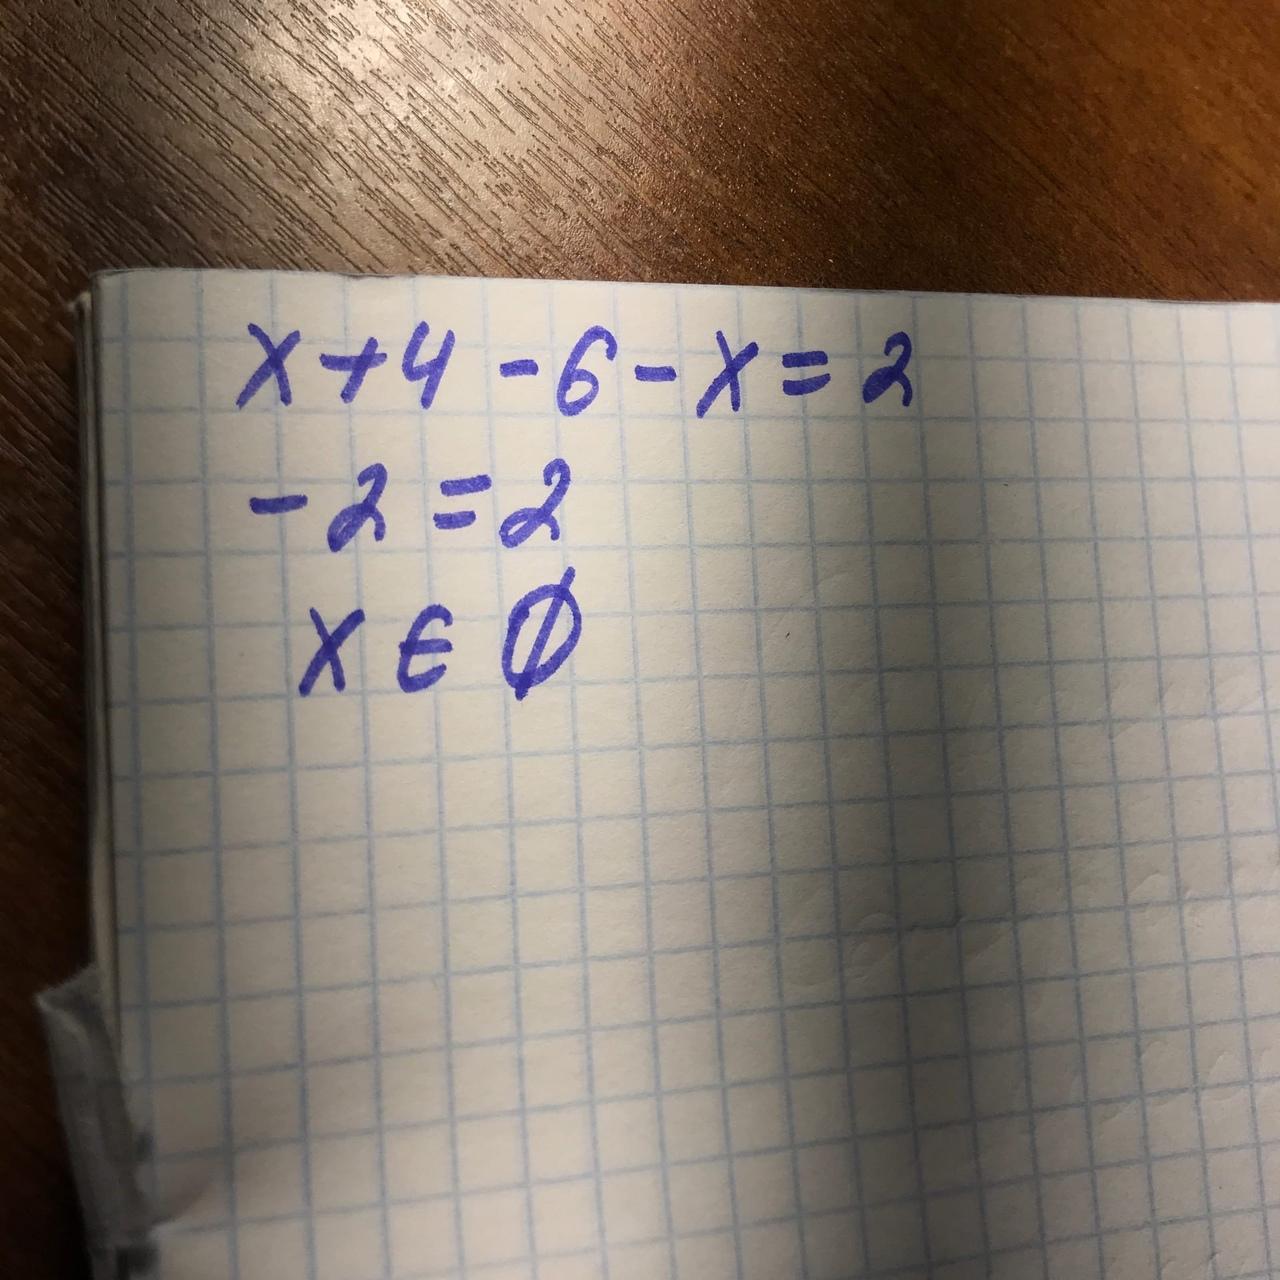 x + 4 - 6 - x = 2
- 2 = 2
x ∈ ∅